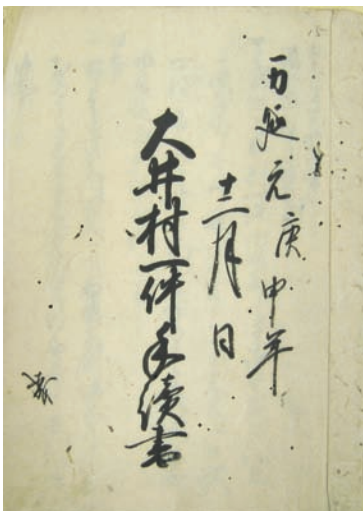 万延元庚申年
十二月日
大井村一件手續書